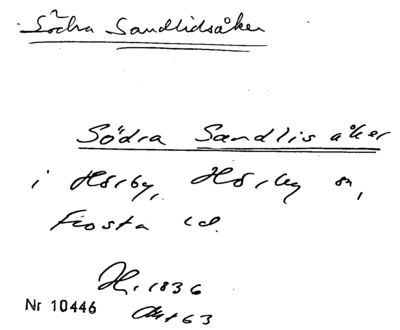 Södra Sandlidsåker
Södra Sandlis åker
i Hörby, Hörby sn,
Frosta hd.
H. 1836
Nr 10446
Akt 63